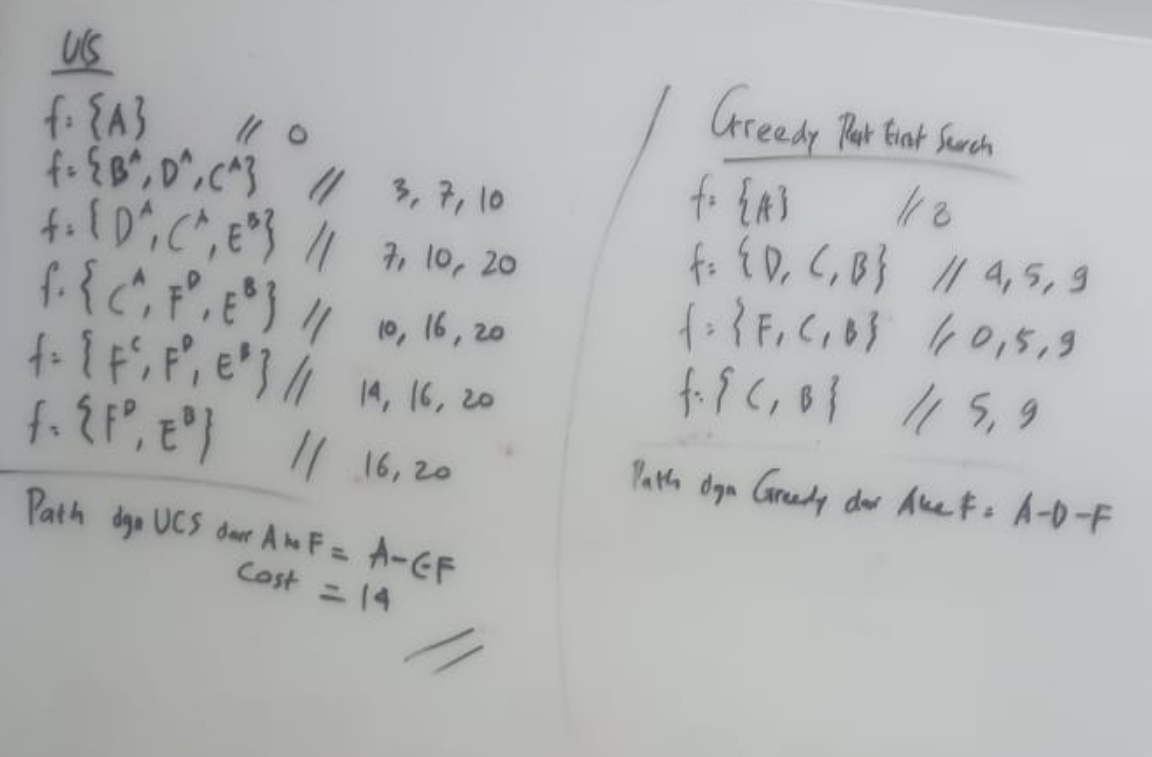 UCS
f = {A} // 0
f = {B^A, D^A, C^A} // 3, 7, 10
f = {D^A, C^A, E^B} // 7, 10, 20
f = {C^A, F^D, E^B} // 10, 16, 20
f = {F^C, F^D, E^B} // 14, 16, 20
f = {F^D, E^B} // 16, 20
Path dgn UCS dari A ke F = A-C-F
Cost = 14
//
Greedy First Search
f = {A} //
f = {D, C, B} // 4, 5, 9
f = {F, C, B} // 0, 5, 9
f = {C, B} // 5, 9
Path dgn Greedy dar A ke F = A-D-F